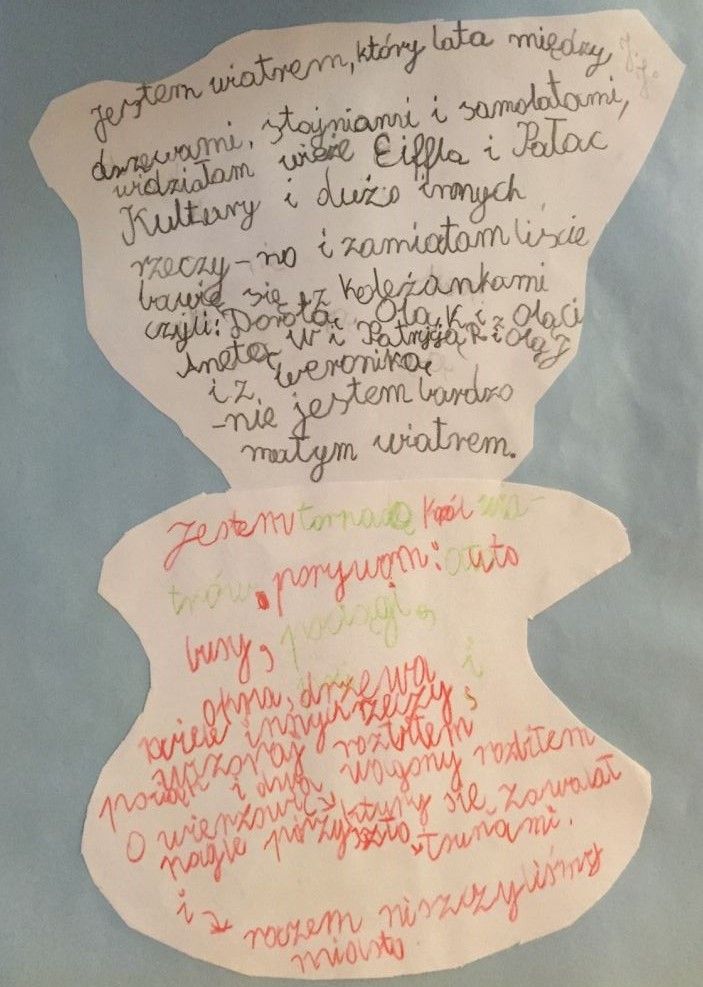 Jestem wiatrem, który lata między
drzewami, stajniami i samolotami,
widziałam wieże Eiffla i Pałac
Kultury i dużo innych
rzeczy – no i zamiatam liście
bawię się z koleżankami
czyli: Dorotą, Olą K i z Olą Ci
Anetą W i Patrycją R i Olą J
i z Weroniką
- nie jestem bardzo
małym wiatrem.
Jestem tornado król wia-
trów, porywam: auto
busy, pociągi,
okna, drzewa i
wiele innych rzeczy,
wczoraj rozbiłem
pociąg i dwa wagony rozbiłem
O wierzowiec który się zawalał
nagle przyszło tsunami.
i razem niszczyliśmy
miasto